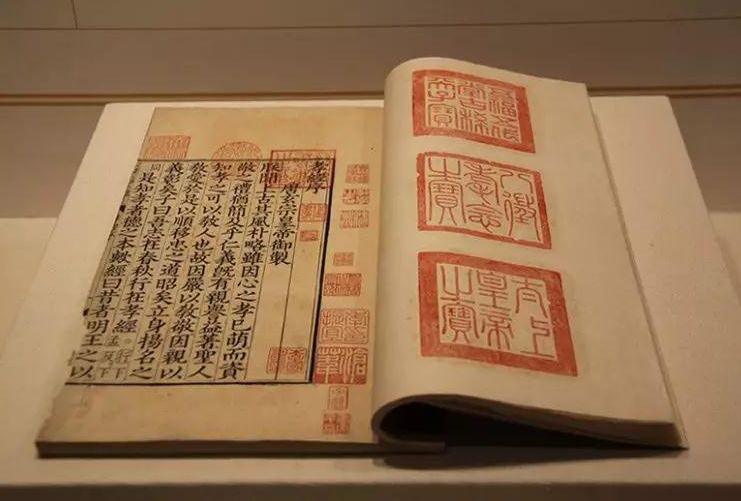 五福五代
堂古稀
天子寶
八徵
耄念
之寶
太上
皇帝
之寶
孝經序
唐玄宗皇帝御製
朕聞上古其風朴略雖因心之孝已萌而資
敬之禮猶簡及乎仁義旣有親譽益著聖人
知孝之可以敎人也故因嚴以敎敬因親以
敎愛於是以順移忠之道昭矣立身揚名之
義彰矣子曰吾志在春秋行在孝經
是知孝者德之本歟經曰昔者明王之以